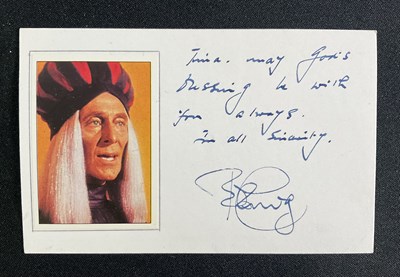 Tina. may God's
blessing be with
you always.
in all sincerity.